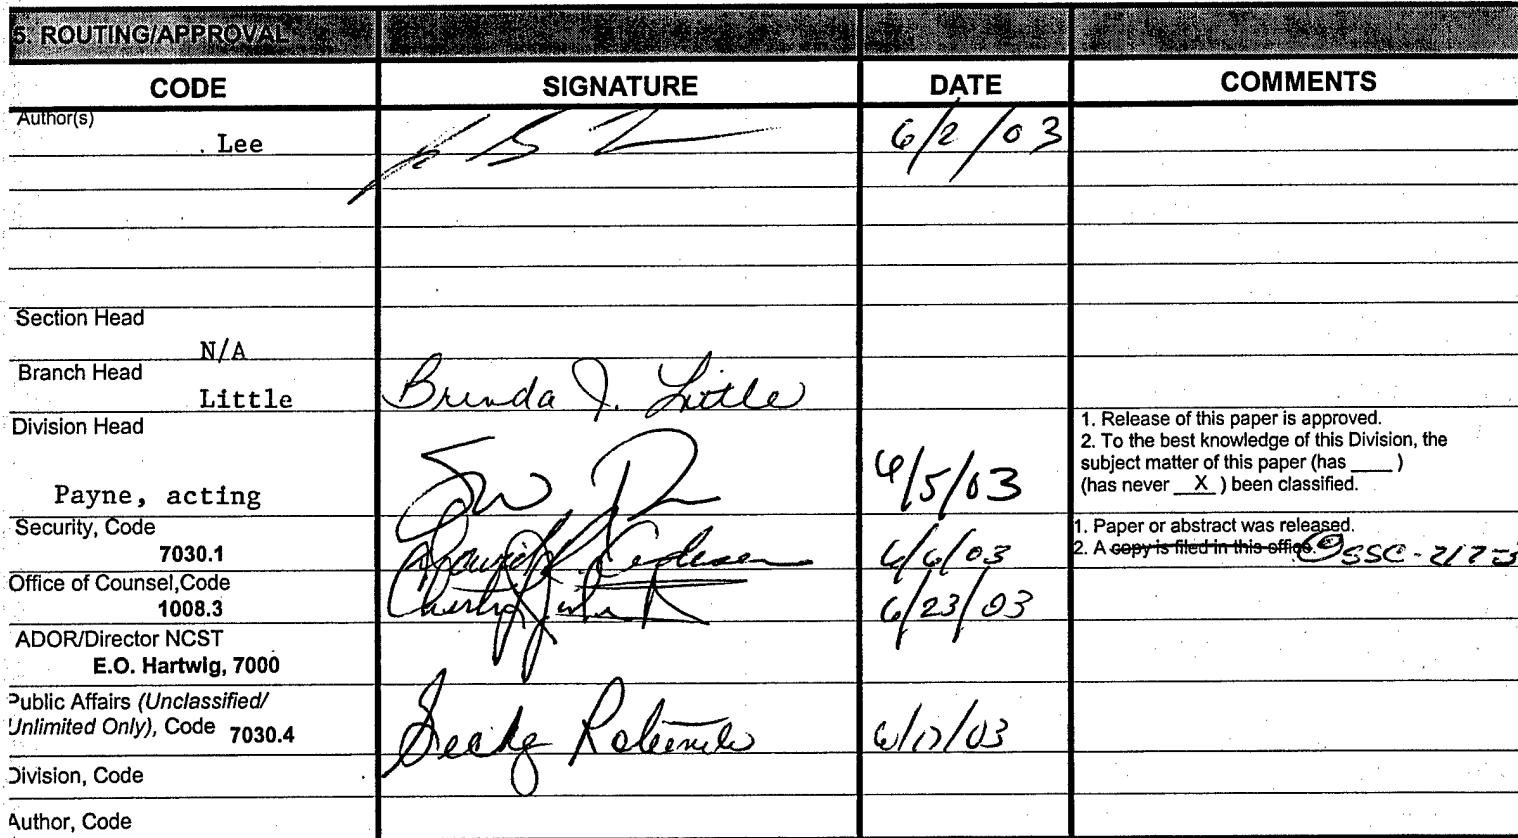 5. ROUTING/APPROVAL
CODE SIGNATURE DATE COMMENTS
Author(s)
Lee 6/2/03
Section Head
N/A
Branch Head
Little Brenda J. Little
Division Head
1. Release of this paper is approved.
2. To the best knowledge of this Division, the
subject matter of this paper (has ____ )
(has never __X__ ) been classified.
Payne, acting 6/5/03
Security, Code
7030.1 6/6/03
1. Paper or abstract was released.
2. A copy is filed in this office. SSC-
Office of Counsel,Code
1008.3 6/23/03
ADOR/Director NCST
E.O. Hartwig, 7000
Public Affairs (Unclassified/
Unlimited Only), Code 7030.4 6/17/03
Division, Code
Author, Code